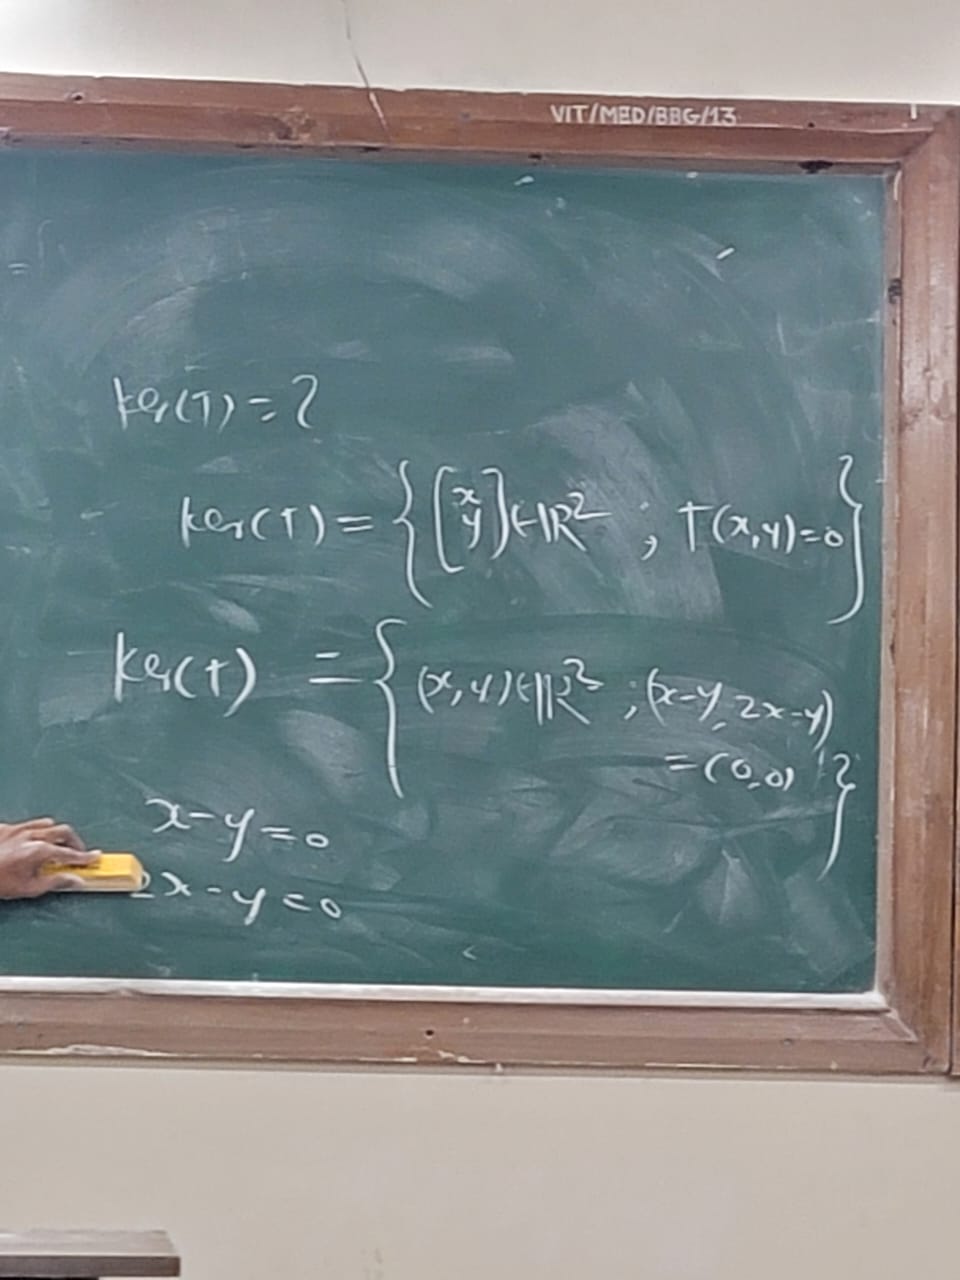 VIT/MED/BBG/13
Ker(T) = ?
Ker(T) = { [x y] ∈ ℝ² ; T(x,y)=0 }
Ker(T) = { (x,y)∈ℝ² ; (x-y, 2x-y)
= (0,0) }
x-y=0
2x-y=0